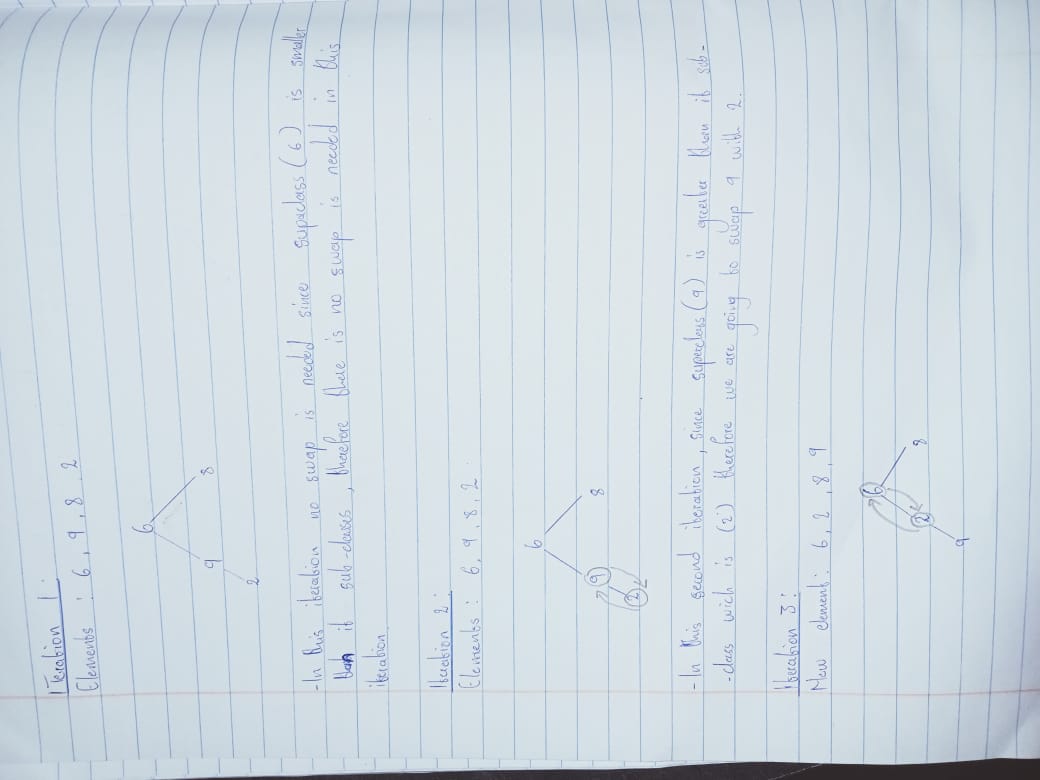 Iteration 1:
Elements : 6, 9, 8, 2
6
9 8
2
- In this iteration no swap is needed since supeclass (6) is smaller
than it sub-classes, therefore there is no swap is needed in this
iteration.
Iteration 2:
Elements : 6, 9, 8, 2.
6
9 8
2
- In this second iteration, since superclass (9) is greeter than it sub-
-class wich is (2) therefore we are going to swap 9 with 2.
Iteration 3:
New element: 6, 2, 8, 9
6
2 8
9